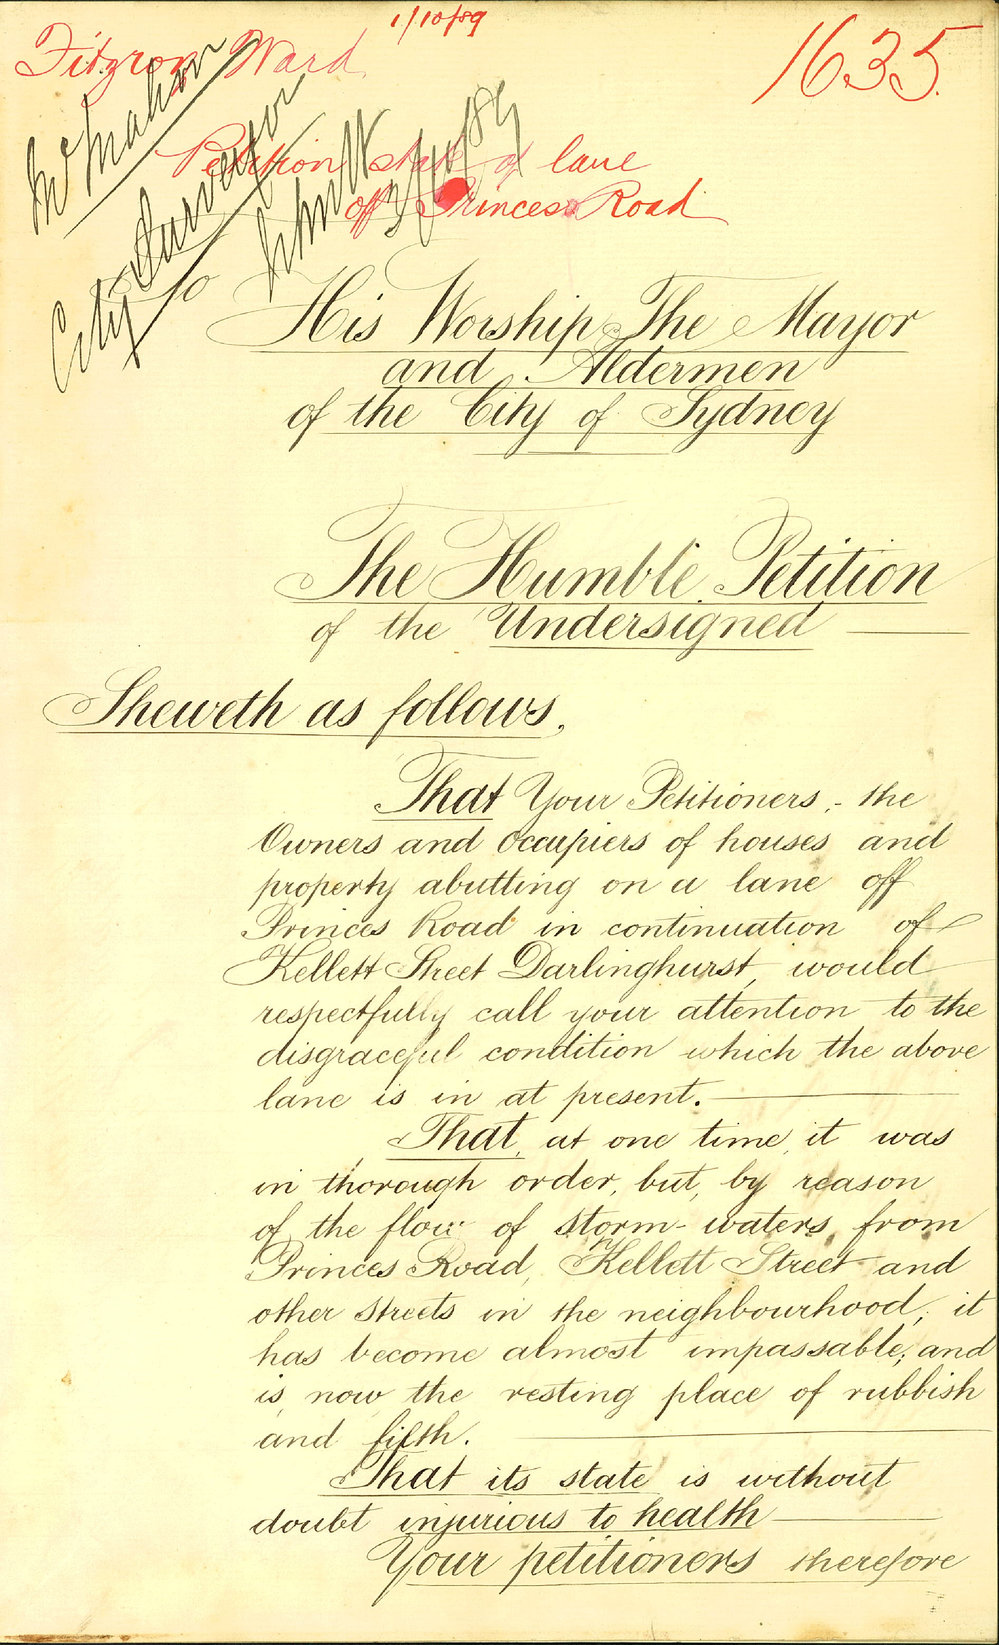 1/10/89
Fitzroy Ward
1635.
Petition state of lane
off Princes Road
McMahon
City Surveyor
3/10/89
To
His Worship The Mayor
and Aldermen
of the City of Sydney
The Humble Petition
of the Undersigned
Sheweth as follows.
That Your Petitioners, - the
Owners and Occupiers of houses and
property abutting on a lane off
Princes Road in continuation of
Kellett Street Darlinghurst, would
respectfully call your attention to the
disgraceful condition which the above
lane is in at present.
That, at one time, it was
in thorough order, but, by reason
of the flow of storm-waters, from
Princes Road, Kellett Street and
other streets in the neighbourhood, it
has become almost impassable; and
is, now the resting place of rubbish
and filth.
That its state is without
doubt injurious to health
Your petitioners therefore